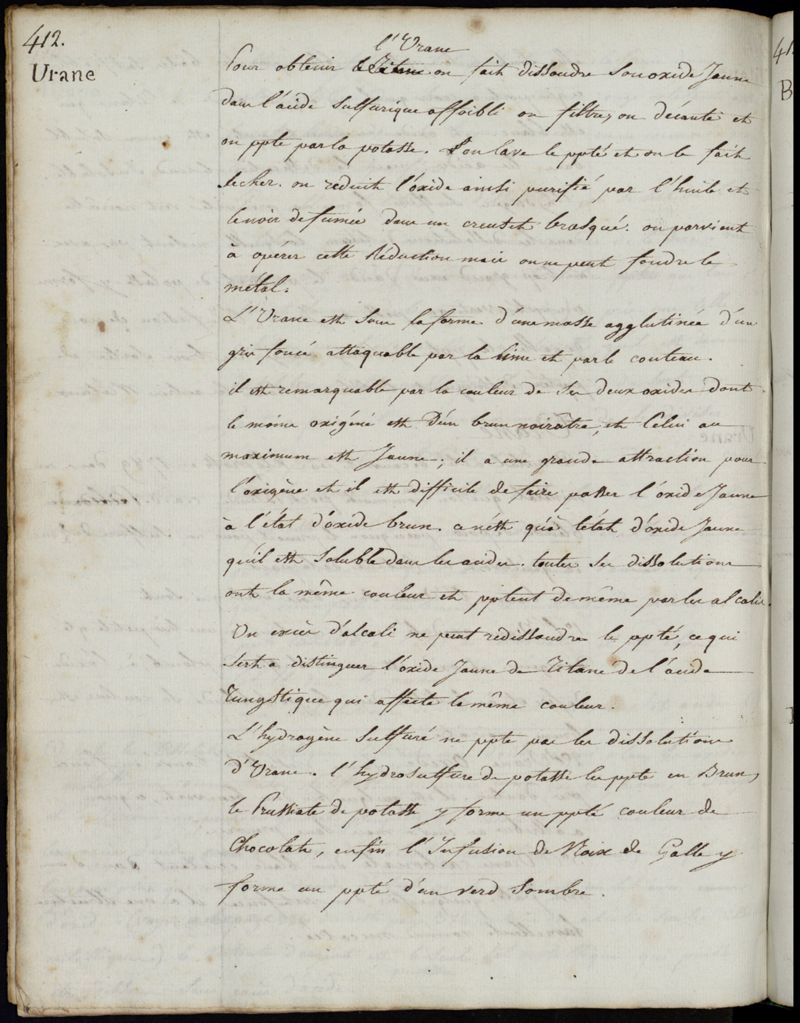 412.
Urane
l'Urane
Pour obtenir le Titane on fait dissoudre son oxide Jaune
dans l'acide Sulfurique affoibli on filtre, on décante et
on ppte par la potasse. L'on lave le ppté et on le fait
secher. on reduit l'oxide ainsi purifié par l'huile et
le noir de fumée dans un creuset brasqué. on parvient
à opérer cette Réduction mais on ne peut fondre le
métal.
L'Urane est sous la forme d'une masse agglutinée d'un
gris foncé attaquable par la lime et par le couteau.
il est remarquable par la couleur de ses deux oxides dont
le moins oxigéné est D'un brun noirâtre, et Celui au
maximum est Jaune; il a une grande attraction pour
l'oxigène et il est difficile de faire passer l'oxide Jaune
à l'état d'oxide brun. ce n'est qu'à l'état d'oxide Jaune
qu'il est Soluble dans les acides. toutes ses dissolutions
ont la même couleur et pptent de même par les alcalis.
Un excès d'alcali ne peut redissoudre le ppté, ce qui
sert a distinguer l'oxide Jaune de Titane de l'acide
Tungstique qui affecte le même couleur.
L'hydrogène Sulfuré ne ppte pas les dissolutions
d'Urane. l'hydrosulfure de potasse les ppte en Brun,
le Prussiate de potasse y forme un ppté couleur de
Chocolate, enfin l'Infusion de Noix de Galle y
forme un ppté d'un verd Sombre.
41
B